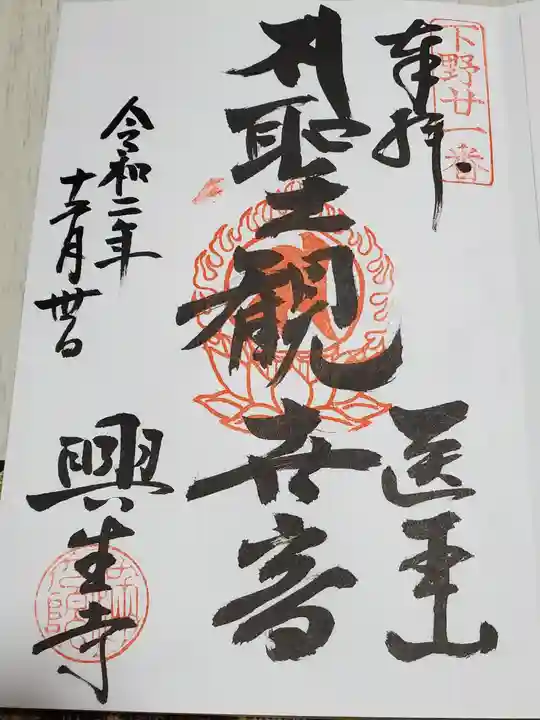 下野廿一番
奉拝
医王山
聖観世音
令和二年
興生寺